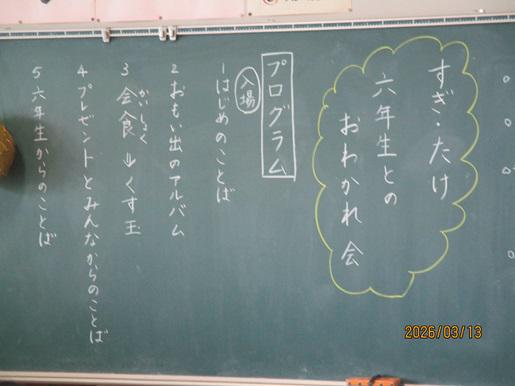 すぎ・たけ
六年生との
おわかれ会
プログラム
入場
1はじめのことば
2おもい出のアルバム
3会食 ↓くす玉
かいしょく
4プレゼントとみんなからのことば
5六年生からのことば
2026/03/13